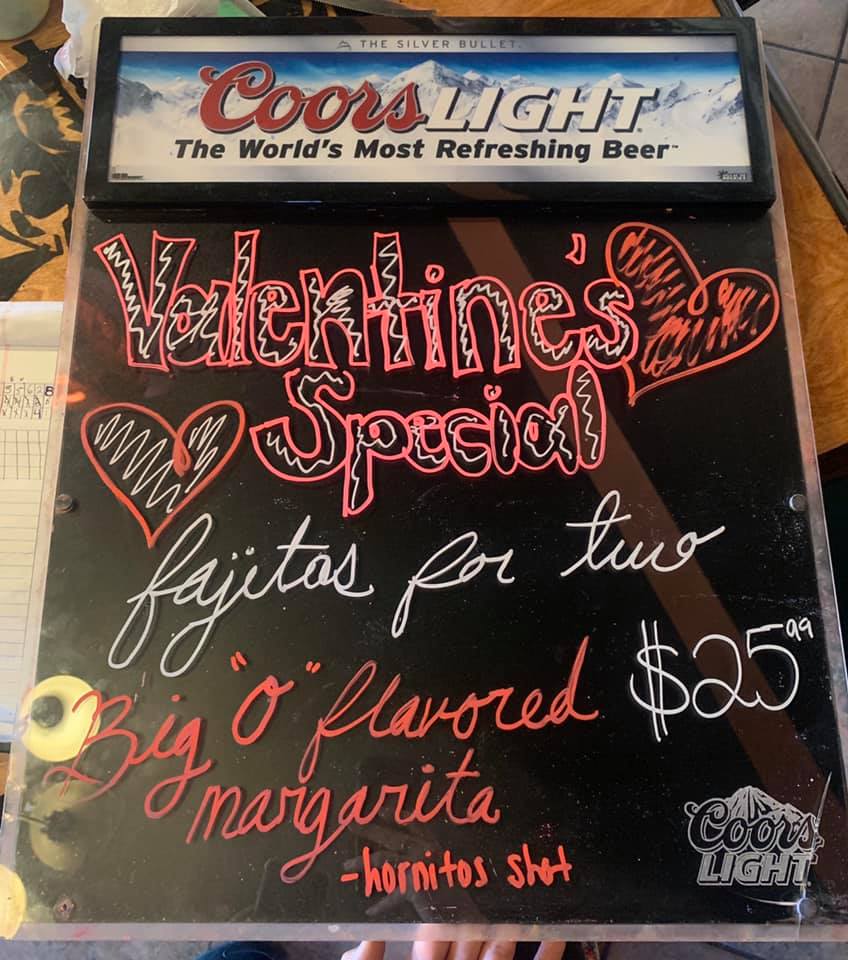 THE SILVER BULLET.
Coors LIGHT
The World's Most Refreshing Beer™
Valentine's
Special
fajitas for two
$25.99
Big "O" flavored
margarita
-hornitos shot
Coors
LIGHT